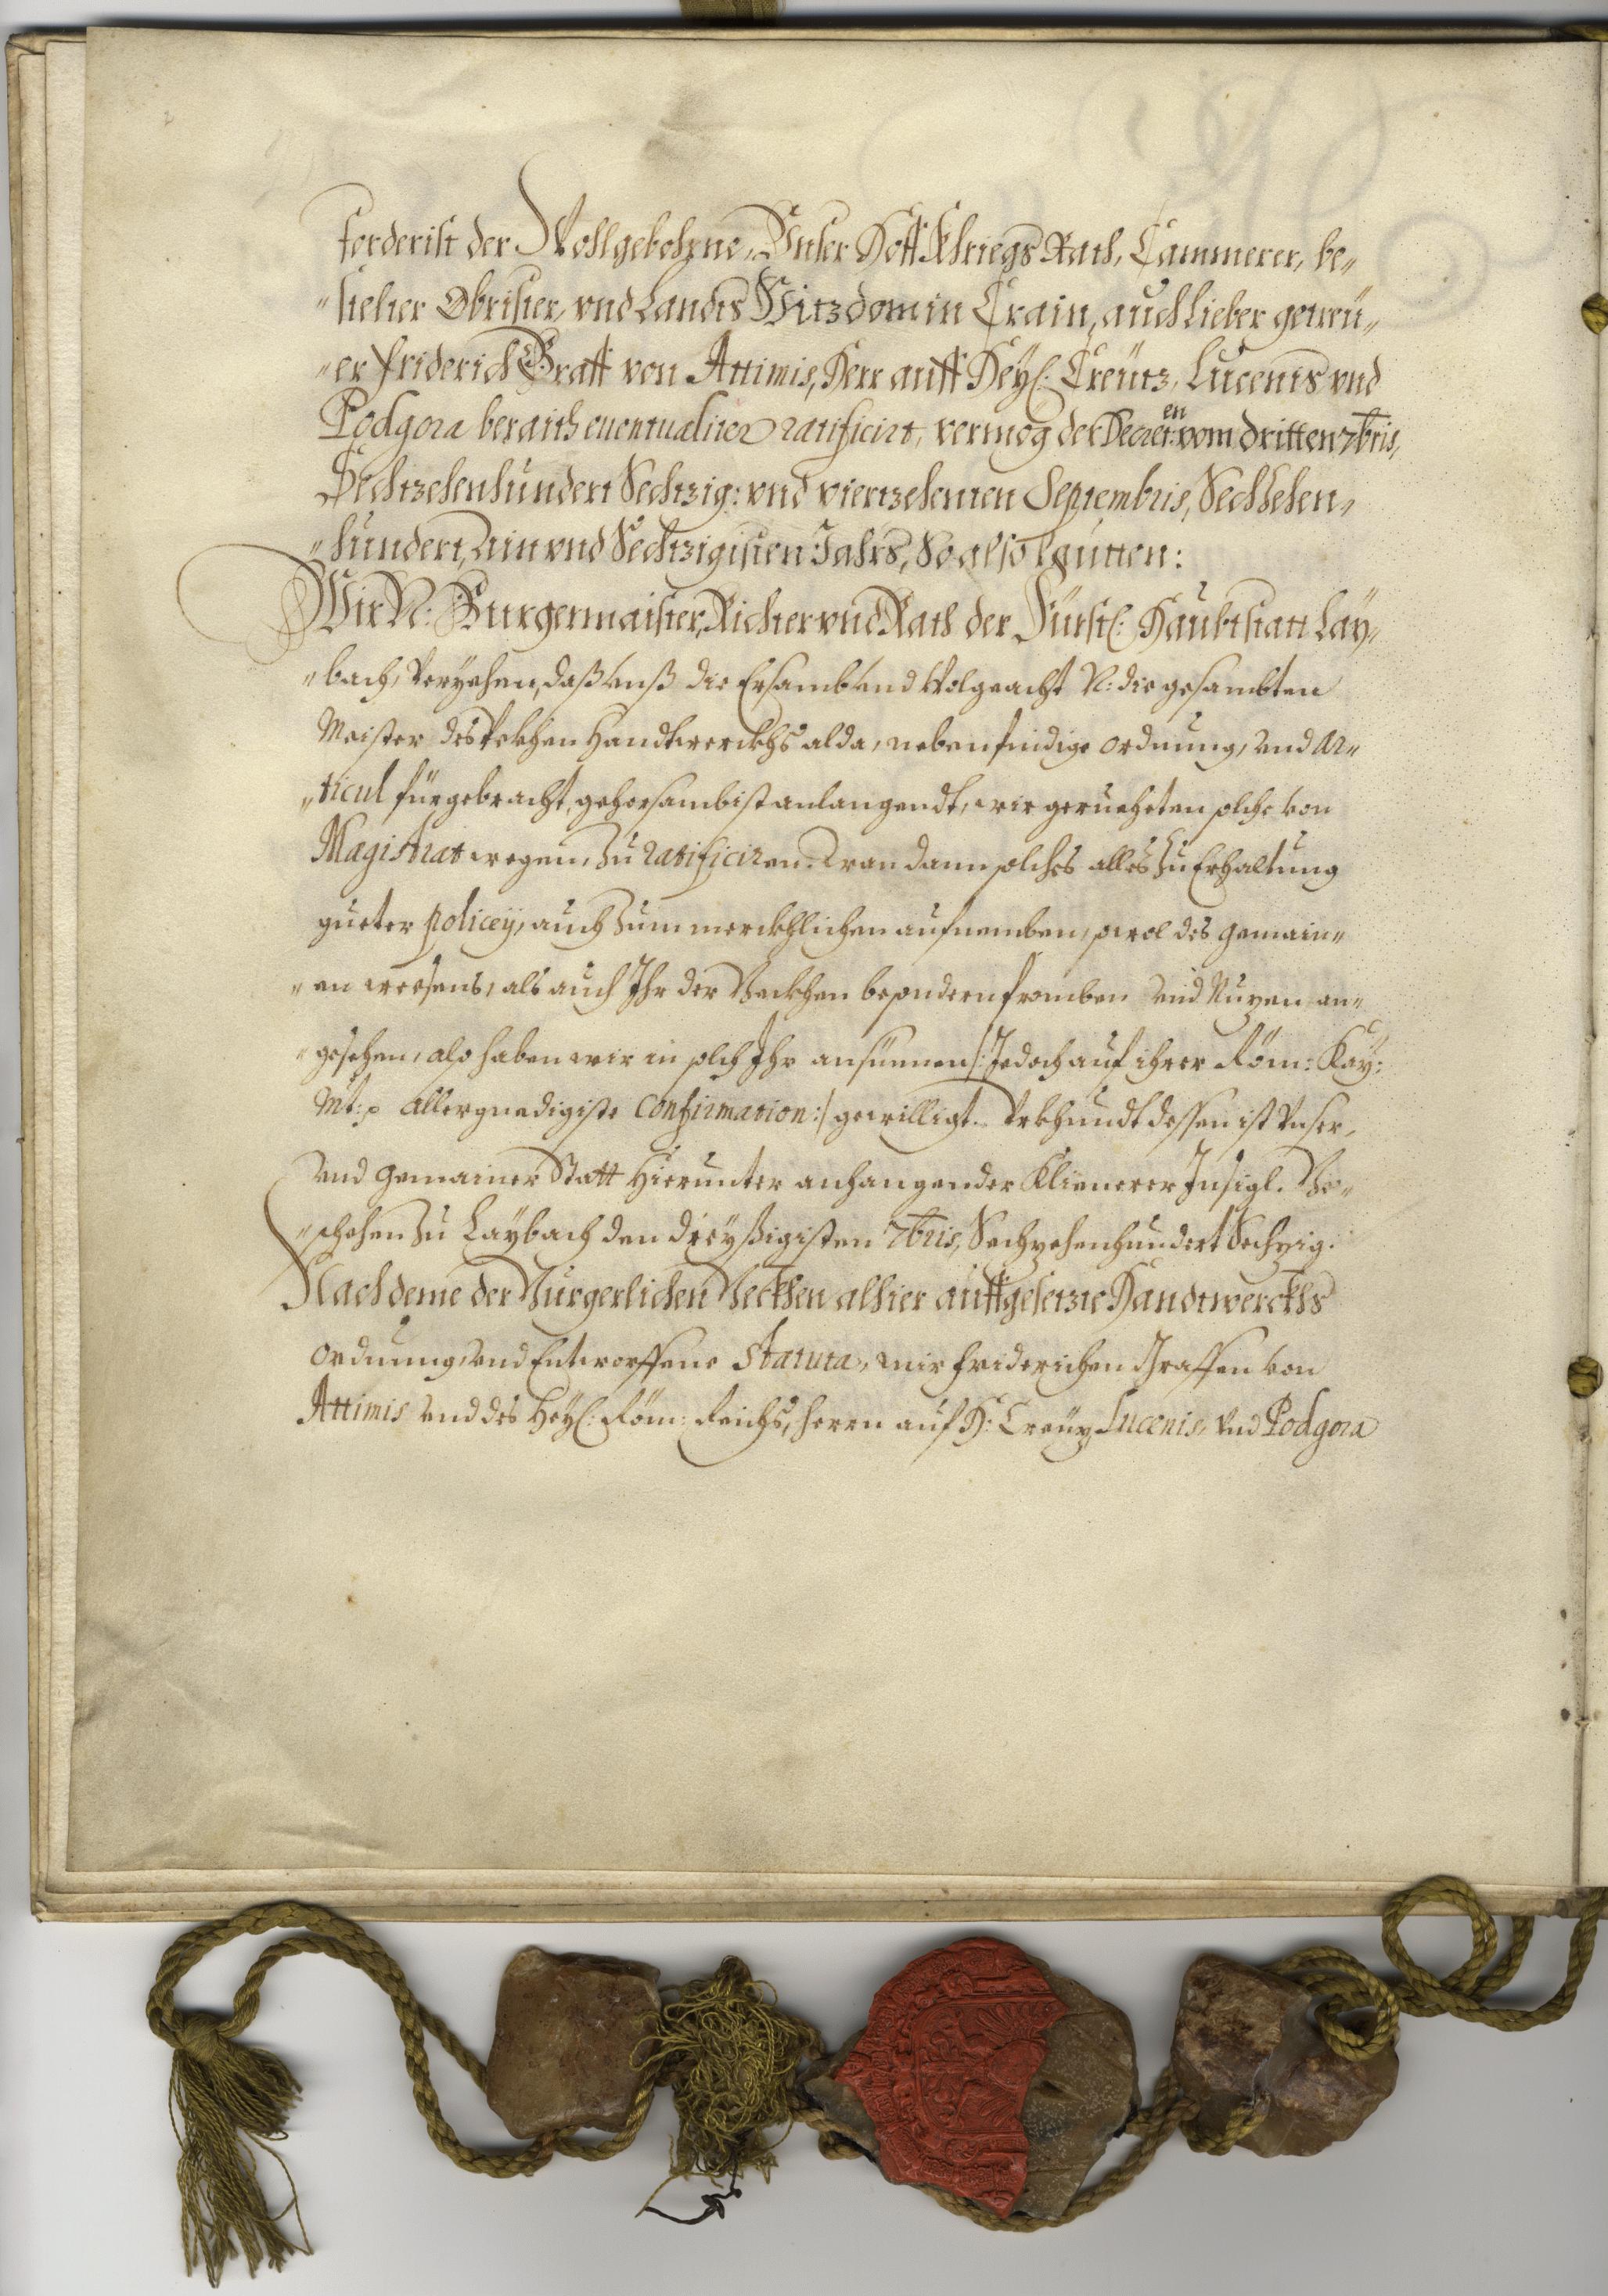 forderist der Wollgebohrne, Unser Hoff Khriegs Rath, Cammerer, be„
„stelter Obrister, vnd Landts Vitzdom in Crain, auch Lieber getreü„
„er Friderich Graff von Attimis, Herr auff Heyl: Creütz, Lucenis vnd
Podgora beraith euentualiter ratificirt, vermög der Decreten vom dritten 7bris,
Sechtzehenhundert Sechtzig: vnd viertzehenten Septembris, Sechzehen„
„hundert, Ain vnd Sechtzigisten Jahrs, So also lautten:
Wir N: Burgermaister, Richter vnd Rath der Fürstl: Haubtstatt Laÿ„
„bach, Veryehen, daß vnß die Ersamb vnd Wolgeacht N: die gesambten
Maister des Pekhen Handtwerckhs alda, neben findige Ordnung, vnd Ar„
„ticul fürgebracht, gehorsambist anlangendt, wir geruehten solche von
Magistrat wegen, zu ratificiren. Wan dann solches alles zu Erhaltung
gueter policeÿ, auch zum merckhlichen aufnemben, sowol des gemain„
„en weesens, als auch Ihr der Beckhen besondern fromben vnd Nuzen an„
„gesehen, also haben wir in solch Ihr ansünnen /: Jedoch auf ihrer Röm: Kaÿ:
Mt: p allergnedigiste Confirmation :/ gewilligt. Vrkhundt dessen ist Vnser,
vnd gemainer Statt hierunter anhangender Klienerer Insigl. Be„
„schehen zu Laÿbach den dreÿßigisten 7bris, Sechzehenhundert Sechzig.
Nachdeme der Burgerlichen Beckhen alhier auffgesetzte Handtwerckhs
Ordnung, vnd Entworffene Statuta, mir Friderichen Graffen von
Attimis vnd des Heyl: Röm: Reichs, Herrn auf H: Creüz, Lucenis, vnd Podgora